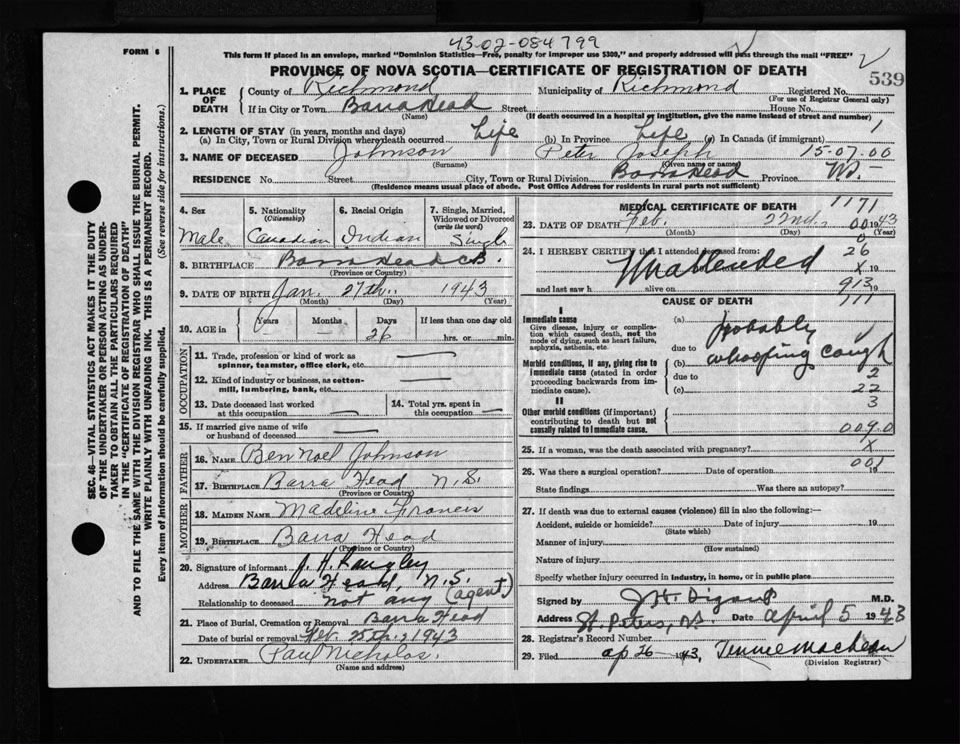 43-02-084799
FORM 6
This form if placed in an envelope, marked "Dominion Statistics—Free, penalty for improper use $300," and properly addressed will pass through the mail "FREE"
PROVINCE OF NOVA SCOTIA—CERTIFICATE OF REGISTRATION OF DEATH
539
1. PLACE OF DEATH
County of Richmond Municipality of Richmond Registered No.
(For use of Registrar General only)
If in City or Town Barra Head Street House No.
(Name) (If death occurred in a hospital or institution, give the name instead of street and number)
2. LENGTH OF STAY (in years, months and days) 1
(a) In City, Town or Rural Division where death occurred Life (b) In Province Life (c) In Canada (if immigrant)
3. NAME OF DECEASED Johnson Peter Joseph 15-07-00
(Surname) (Given name or names)
RESIDENCE No. Street City, Town or Rural Division Barra Head Province N.S.
(Residence means usual place of abode. Post Office Address for residents in rural parts not sufficient)
4. Sex
Male
5. Nationality
(Citizenship)
Canadian
6. Racial Origin
Indian
7. Single, Married, Widowed or Divorced
(write the word)
Single
8. BIRTHPLACE Barra Head C.B.
(Province or Country)
9. DATE OF BIRTH Jan. 27th. 1943
(Month) (Day) (Year)
10. AGE in Years Months Days If less than one day old
26 hrs. or min.
OCCUPATION
11. Trade, profession or kind of work as spinner, teamster, office clerk, etc.
12. Kind of industry or business, as cotton-mill, lumbering, bank, etc.
13. Date deceased last worked at this occupation
14. Total yrs. spent in this occupation
15. If married give name of wife or husband of deceased
FATHER
16. NAME Ben Noel Johnson
17. BIRTHPLACE Barra Head N.S.
(Province or Country)
MOTHER
18. MAIDEN NAME Madeline Francis
19. BIRTHPLACE Barra Head
(Province or Country)
20. Signature of informant
Address Barra Head, N.S.
Relationship to deceased not any (agent)
21. Place of Burial, Cremation or Removal Barra Head
Date of burial or removal Feb. 25th, 1943
22. UNDERTAKER Paul Nicholas
(Name and address)
MEDICAL CERTIFICATE OF DEATH 1171
23. DATE OF DEATH Feb. 22nd. 00 1943
(Month) (Day) (Year)
0
24. I HEREBY CERTIFY that I attended deceased from: 26
Unattended X 19
and last saw h alive on 913 19
CAUSE OF DEATH 111
I
Immediate cause
Give disease, injury or complication which caused death, not the mode of dying, such as heart failure, asphyxia, asthenia, etc.
(a) Probably
due to
Morbid conditions, if any, giving rise to immediate cause (stated in order proceeding backwards from immediate cause).
(b) whooping cough
due to 2
(c) 22
II 3
Other morbid conditions (if important) contributing to death but not causally related to immediate cause.
009.0
25. If a woman, was the death associated with pregnancy? X
001
26. Was there a surgical operation? Date of operation 19
State findings Was there an autopsy?
27. If death was due to external causes (violence) fill in also the following:—
Accident, suicide or homicide? Date of injury 19
(State which)
Manner of injury
(How sustained)
Nature of injury
Specify whether injury occurred in industry, in home, or in public place
Signed by M.D.
Address St. Peters, N.S. Date April 5 1943
28. Registrar's Record Number
29. Filed ap 26 1943,
(Division Registrar)
SEC. 46—VITAL STATISTICS ACT MAKES IT THE DUTY
OF THE UNDERTAKER OR PERSON ACTING AS UNDER-
TAKER TO OBTAIN ALL THE PARTICULARS REQUIRED
IN THE "CERTIFICATE OF REGISTRATION OF DEATH"
AND TO FILE THE SAME WITH THE DIVISION REGISTRAR WHO SHALL ISSUE THE BURIAL PERMIT.
WRITE PLAINLY WITH UNFADING INK. THIS IS A PERMANENT RECORD.
Every item of information should be carefully supplied. (See reverse side for instructions.)